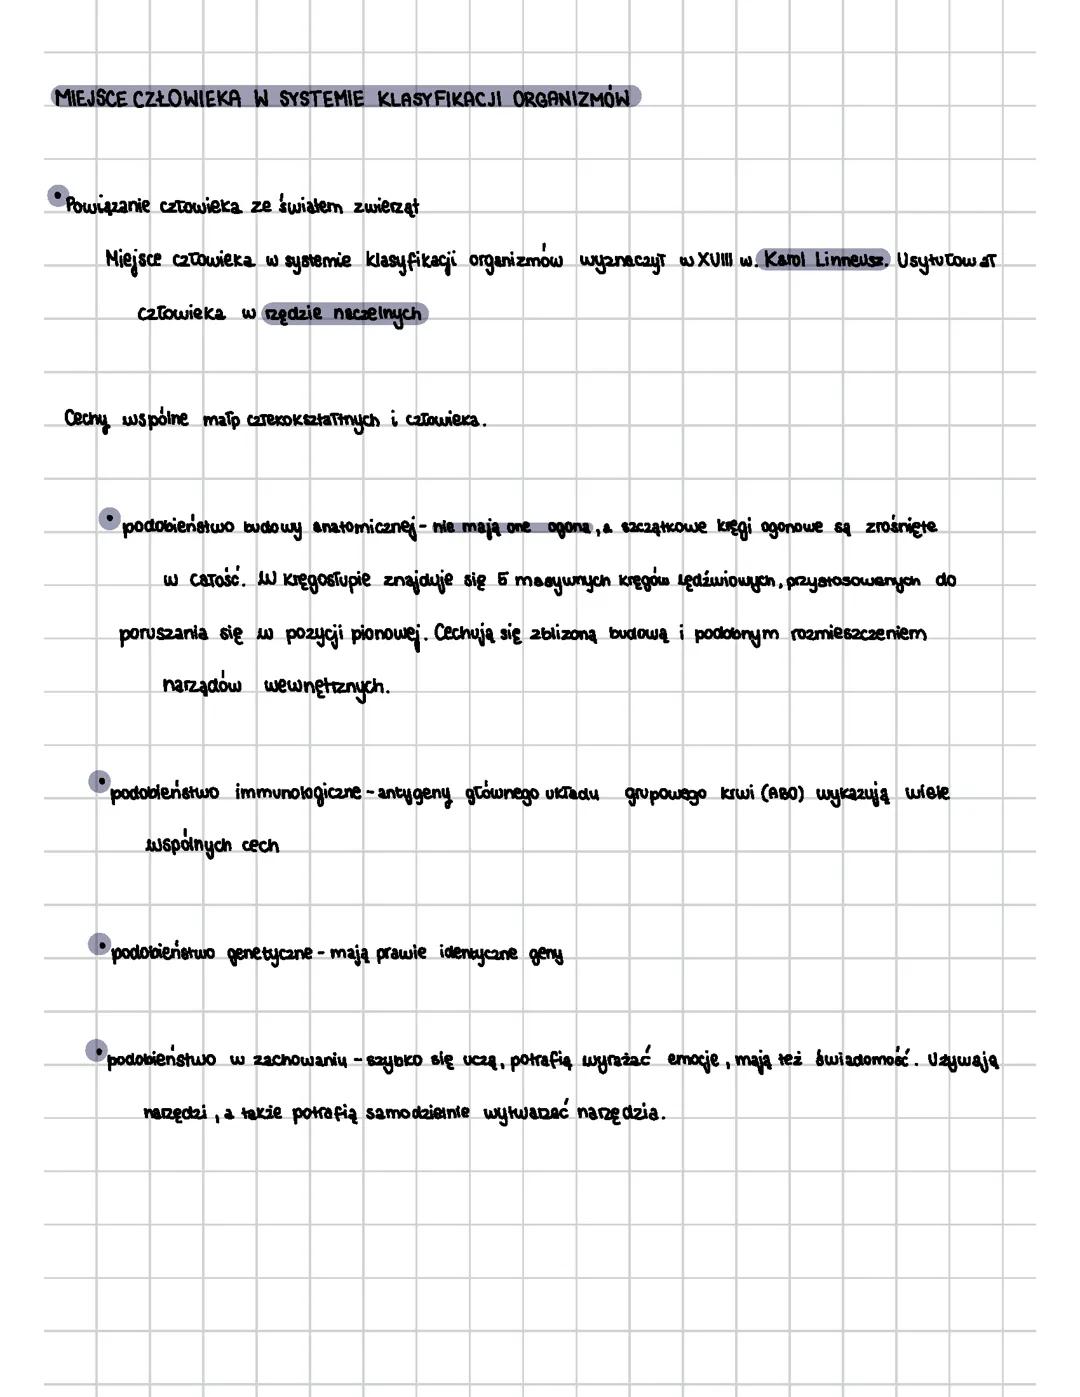 MIEJSCE CZŁOWIEKA W SYSTEMIE KLASYFIKACJI ORGANIZMÓW
• Powiązanie człowieka ze światem zwierząt
Miejsce człowieka w systemie klasyfikacji organizmów wyznaczył w XVIII w. Karol Linneusz. Usytułował
człowieka w rzędzie naczelnych
Cechy wspólne małp człekokształtnych i człowieka.
• podobieństwo budowy anatomicznej - nie mają one ogona, a szczątkowe kręgi ogonowe są zrośnięte
w całość. W kręgosłupie znajduje się 5 masywnych kręgów lędźwiowych, przystosowanych do
poruszania się w pozycji pionowej. Cechują się zbliżoną budową i podobnym rozmieszczeniem
narządów wewnętrznych.
• podobieństwo immunologiczne - antygeny głównego układu grupowego krwi (ABO) wykazują wiele
wspólnych cech
• podobieństwo genetyczne - mają prawie identyczne geny
• podobieństwo w zachowaniu - szybko się uczą, potrafią wyrażać emocje, mają też świadomość. Używają
narzędzi, a także potrafią samodzielnie wytwarzać narzędzia.